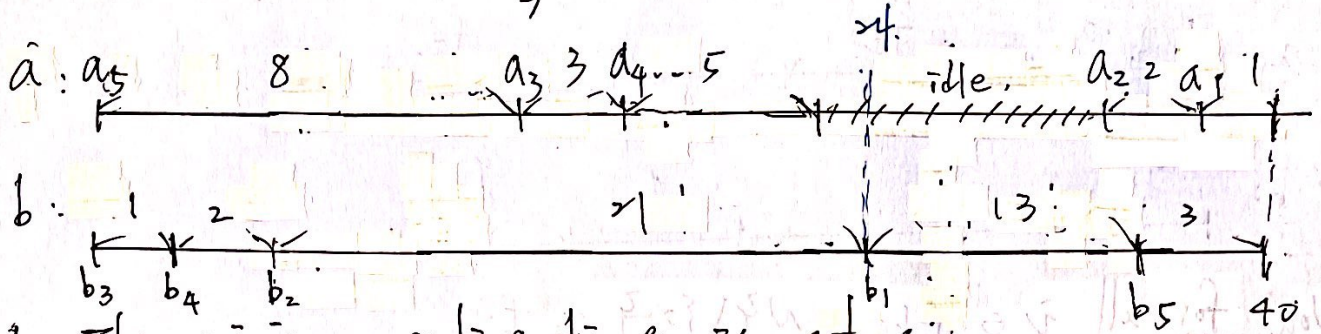 24.
a: a5 8 a3 3 a4 5 idle. a2 2 a1 1
b: 1 2 21 13 3
b3 b4 b2 b1 b5 40